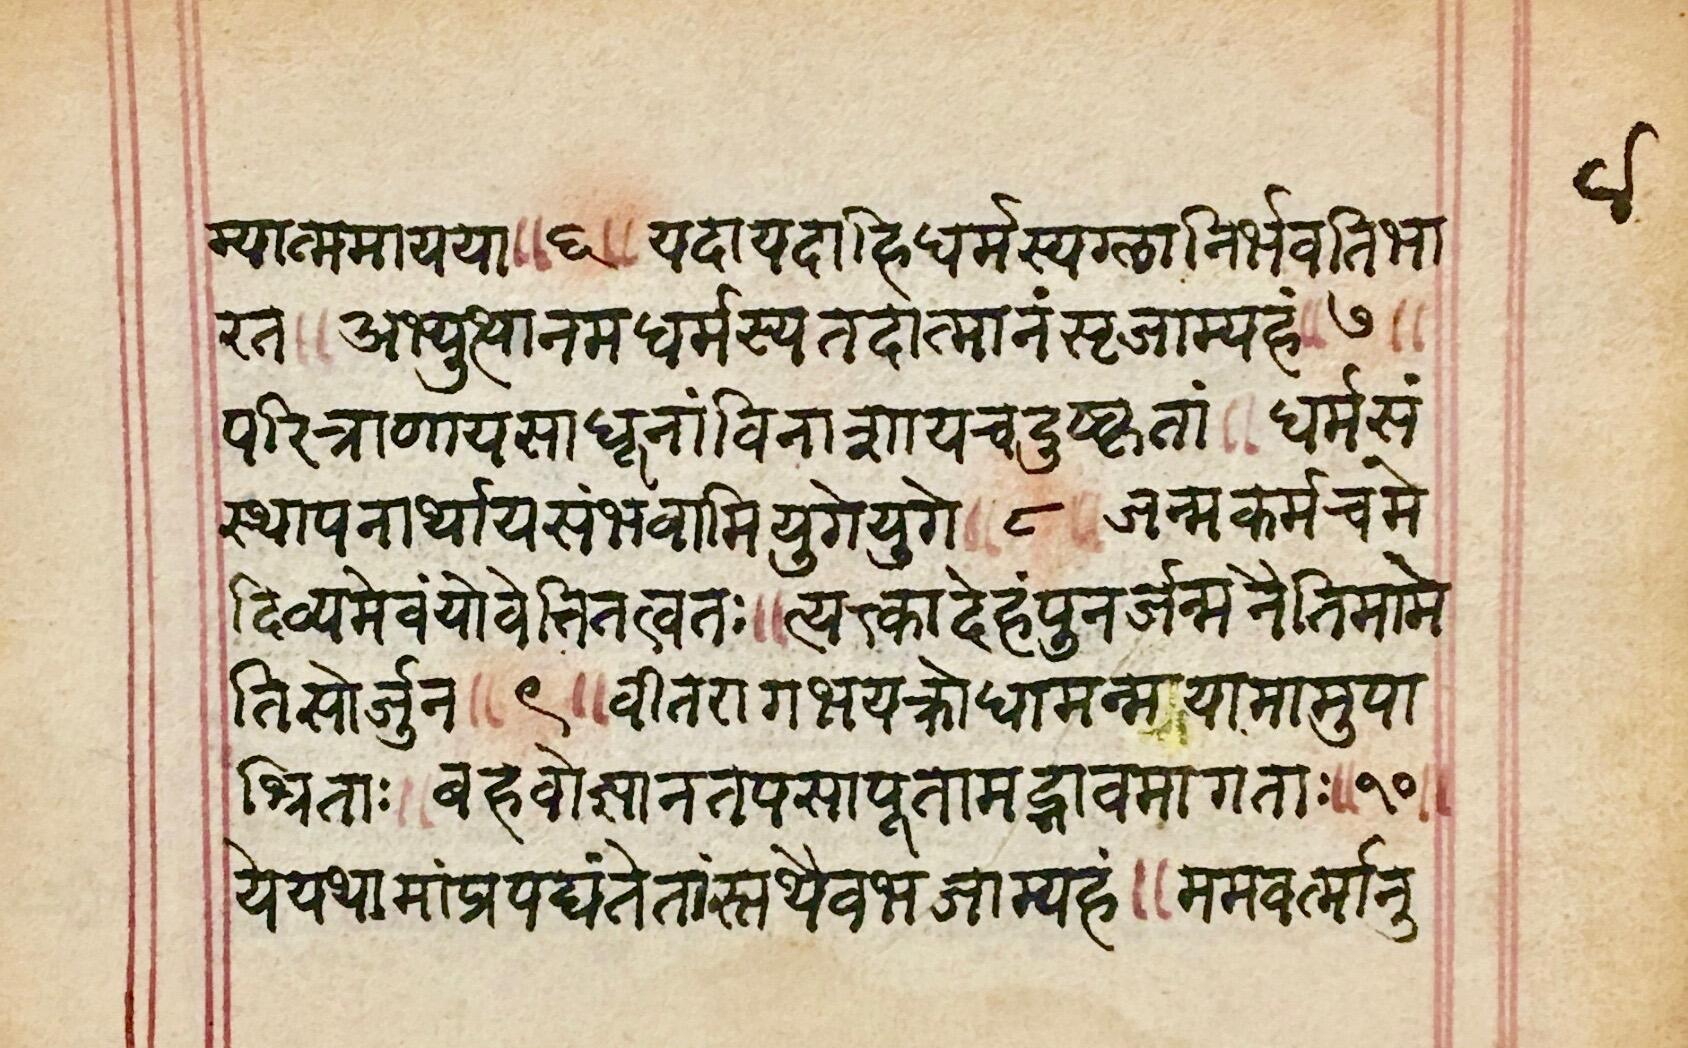 म्यात्ममायया॥६॥ यदायदाहिधर्मस्यग्लानिर्भवतिभा
रत॥ अभ्युत्थानमधर्मस्यतदात्मानंसृजाम्यहं॥७॥
परित्राणायसाधूनांविनाशायचदुष्कृतां॥ धर्मसं
स्थापनार्थायसंभवामियुगेयुगे॥८॥ जन्मकर्मचमे
दिव्यमेवंयोवेत्तितत्वतः॥त्यक्त्कादेहंपुनर्जन्मनैतिमामे
तिसोर्जुन॥९॥वीतरागभयक्रोधामन्मयामामुपा
श्रिताः॥ बहवोज्ञानतपसापूतामद्भावमागताः॥१०॥
येयथामांप्रपद्यंतेतांस्तथैवभजाम्यहं॥ममवर्त्मानु